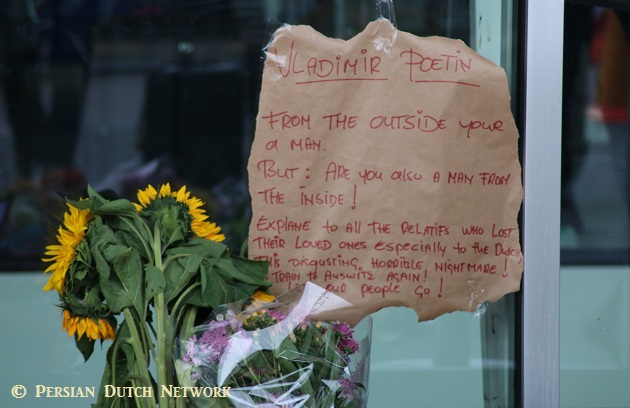 VLADIMIR POETIN
FROM THE OUTSIDE YOUR
A MAN.
BUT: ARE YOU ALSO A MAN FROM
THE INSIDE!
EXPLANE TO ALL THE RELATIFS WHO LOST
THEIR LOVED ONES ESPECIALLY TO THE DUTCH
THIS DISGUSTING, HORRIBLE NIGHTMARE!
TRAIN TO AUSWITZ AGAIN!
OUR PEOPLE GO!
© PERSIAN DUTCH NETWORK